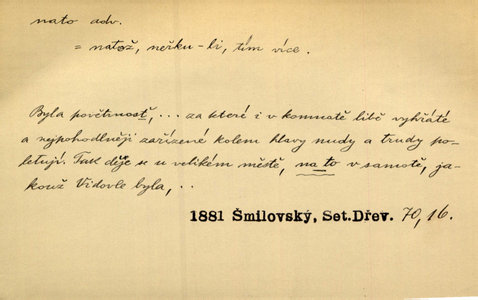 nato adv.
= natož, neřku-li, tím více.
Byla povětrnost, ... za které i v komnatě libě vyhřáté
a nejpohodlněji zařízené kolem hlavy nudy a trudy po-
letují. Tak děje se u velikém městě, na to v samotě, ja-
kouž Vidovle byla, ..
1881 Šmilovský, Set.Dřev. 70, 16.